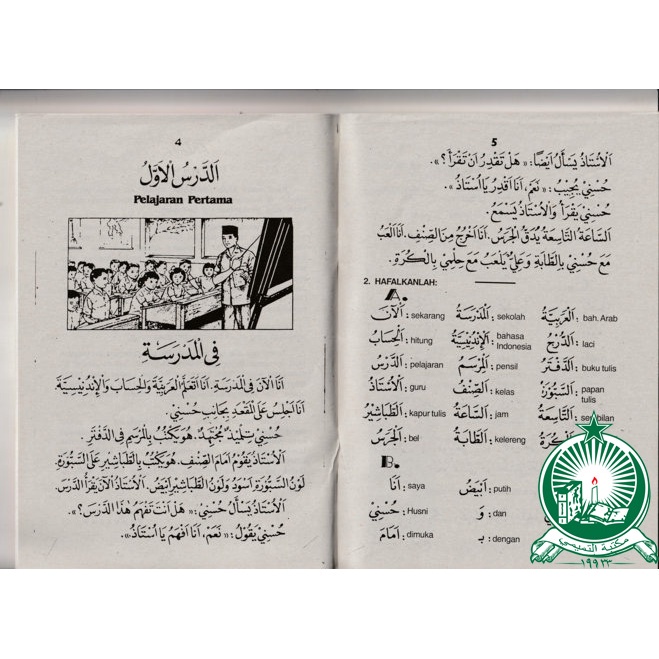 4
اَلدَّرْسُ الْاَوَّلُ
Pelajaran Pertama
فِي الْمَدْرَسَةِ
اَنَا الْآنَ فِي الْمَدْرَسَةِ. اَنَا اَتَعَلَّمُ الْعَرَبِيَّةَ وَالْحِسَابَ وَالْإِنْدُنِيْسِيَّةَ.
اَنَا اَجْلِسُ عَلَى الْمَقْعَدِ بِجَانِبِ حُسْنِيْ.
حُسْنِيْ تِلْمِيْذٌ مُجْتَهِدٌ. هُوَ يَكْتُبُ بِالْمِرْسَمِ فِي الدَّفْتَرِ.
اَلْأُسْتَاذُ يَقُوْمُ اَمَامَ الصِّنْفِ. هُوَ يَكْتُبُ بِالطَّبَاشِيْرِ عَلَى السَّبُّوْرَةِ.
لَوْنُ السَّبُّوْرَةِ اَسْوَدُ وَلَوْنُ الطَّبَاشِيْرِ اَبْيَضُ. اَلْأُسْتَاذُ الْآنَ يَقْرَأُ الدَّرْسَ.
اَلْأُسْتَاذُ يَسْأَلُ حُسْنِيْ: «هَلْ اَنْتَ تَفْهَمُ هٰذَا الدَّرْسَ؟».
حُسْنِيْ يَقُوْلُ: «نَعَمْ، اَنَا اَفْهَمُ يَا اُسْتَاذُ».
5
اَلْأُسْتَاذُ يَسْأَلُ اَيْضًا: «هَلْ تَقْدِرُ اَنْ تَقْرَأَ؟».
حُسْنِيْ يُجِيْبُ: «نَعَمْ، اَنَا اَقْدِرُ يَا اُسْتَاذُ».
حُسْنِيْ يَقْرَأُ وَالْأُسْتَاذُ يَسْمَعُ.
اَلسَّاعَةَ التَّاسِعَةَ يُدَقُّ الْجَرَسُ. اَنَا اَخْرُجُ مِنَ الصِّنْفِ. اَنَا اَلْعَبُ
مَعَ حُسْنِيْ بِالطَّابَةِ وَعَلِيٌّ يَلْعَبُ مَعَ حِلْمِيْ بِالْكُرَةِ.
2. HAFALKANLAH:
A.
اَلْعَرَبِيَّةُ : bah. Arab اَلْمَدْرَسَةُ : sekolah اَلْآنَ : sekarang
اَلدُّرْجُ : laci اَلْإِنْدُنِيْسِيَّةُ : bahasa Indonesia اَلْحِسَابُ : hitung
اَلدَّفْتَرُ : buku tulis اَلْمِرْسَمُ : pensil اَلدَّرْسُ : pelajaran
اَلسَّبُّوْرَةُ : papan tulis اَلصِّنْفُ : kelas اَلْأُسْتَاذُ : guru
اَلتَّاسِعَةُ : sembilan اَلسَّاعَةُ : jam اَلطَّبَاشِيْرُ : kapur tulis
اَلْكُرَةُ : اَلطَّابَةُ : kelereng اَلْجَرَسُ : bel
B.
اَبْيَضُ : putih اَنَا : saya
وَ : dan حُسْنِيْ : Husni
بِـ : dengan اَمَامَ : dimuka
مكتبة التميمي